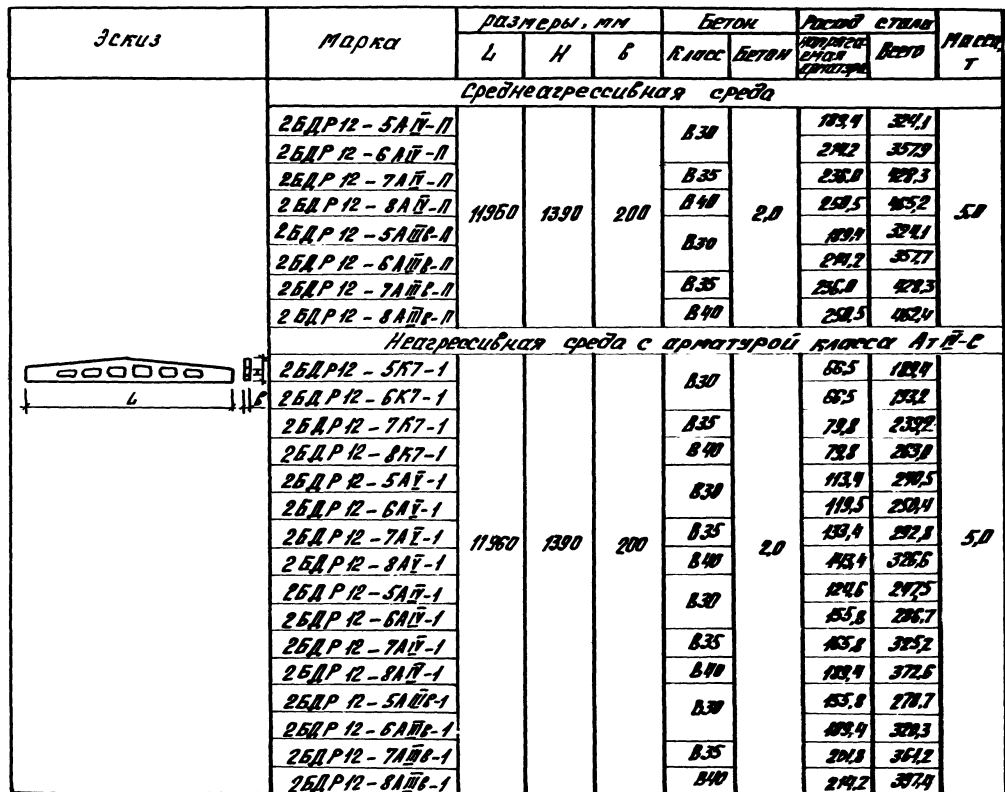 Эскиз Марка размеры, мм Бетон Расход стали Масса, т
L H b Класс Бетон напрягаемая арматура Всего
Среднеагрессивная среда
2БДР12-5АIV-П 11960 1390 200 В30 2,0 189,4 324,1 5,0
2БДР12-6АIV-П 214,2 357,9
2БДР12-7АIV-П В35 236,0 428,3
2БДР12-8АIV-П В40 258,5
2БДР12-5АIIIв-П В30 189,4 324,1
2БДР12-6АIIIв-П 214,2 357,7
2БДР12-7АIIIв-П В35 236,0 428,3
2БДР12-8АIIIв-П В40 258,5 462,4
Неагрессивная среда с арматурой класса АтIV-С
L b
2БДР12-5К7-1 11960 1390 200 В30 2,0 66,5 189,4 5,0
2БДР12-6К7-1 66,5 193,2
2БДР12-7К7-1 В35 79,8 239,2
2БДР12-8К7-1 В40 79,8 263,0
2БДР12-5АV-1 В30 113,4
2БДР12-6АV-1 119,5 250,4
2БДР12-7АV-1 В35 133,4 292,8
2БДР12-8АV-1 В40 143,4 326,6
2БДР12-5АIV-1 В30 124,6 247,5
2БДР12-6АIV-1 155,8 286,7
2БДР12-7АIV-1 В35 165,8 325,2
2БДР12-8АIV-1 В40 189,4 372,6
2БДР12-5АIIIв-1 В30 155,8 278,7
2БДР12-6АIIIв-1 189,4 320,3
2БДР12-7АIIIв-1 В35 201,8 361,2
2БДР12-8АIIIв-1 В40 214,2 397,4